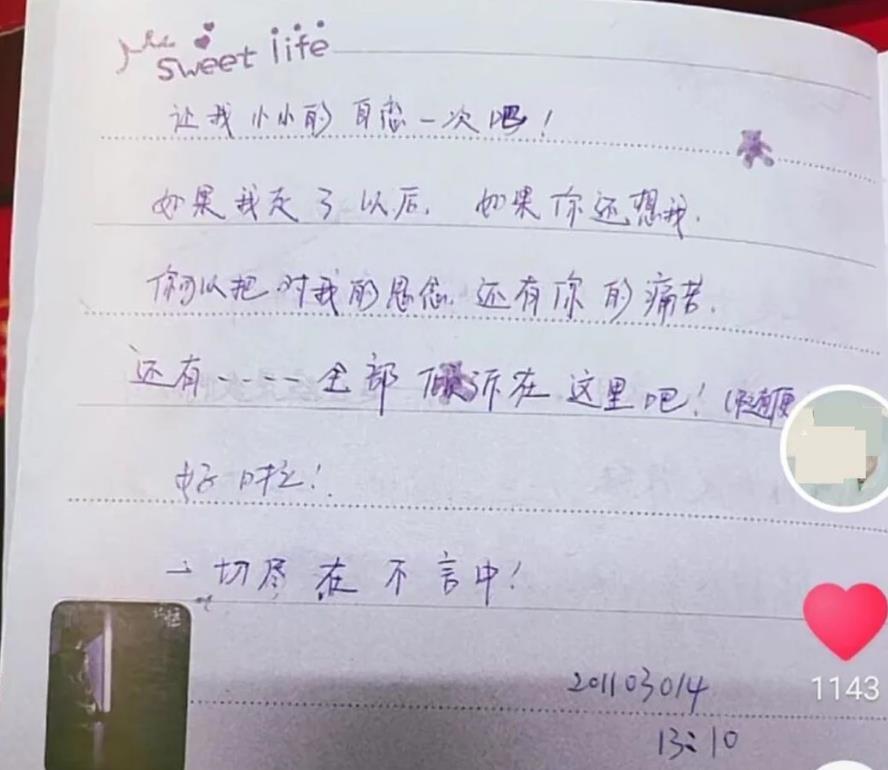 sweet life
让我小小的自恋一次吧！
如果我走了以后，如果你还想我，
你可以把对我的思念，还有你的痛苦，
还有----全部倾诉在这里吧！
好啦！
一切尽在不言中！
201103014
13:10
1143